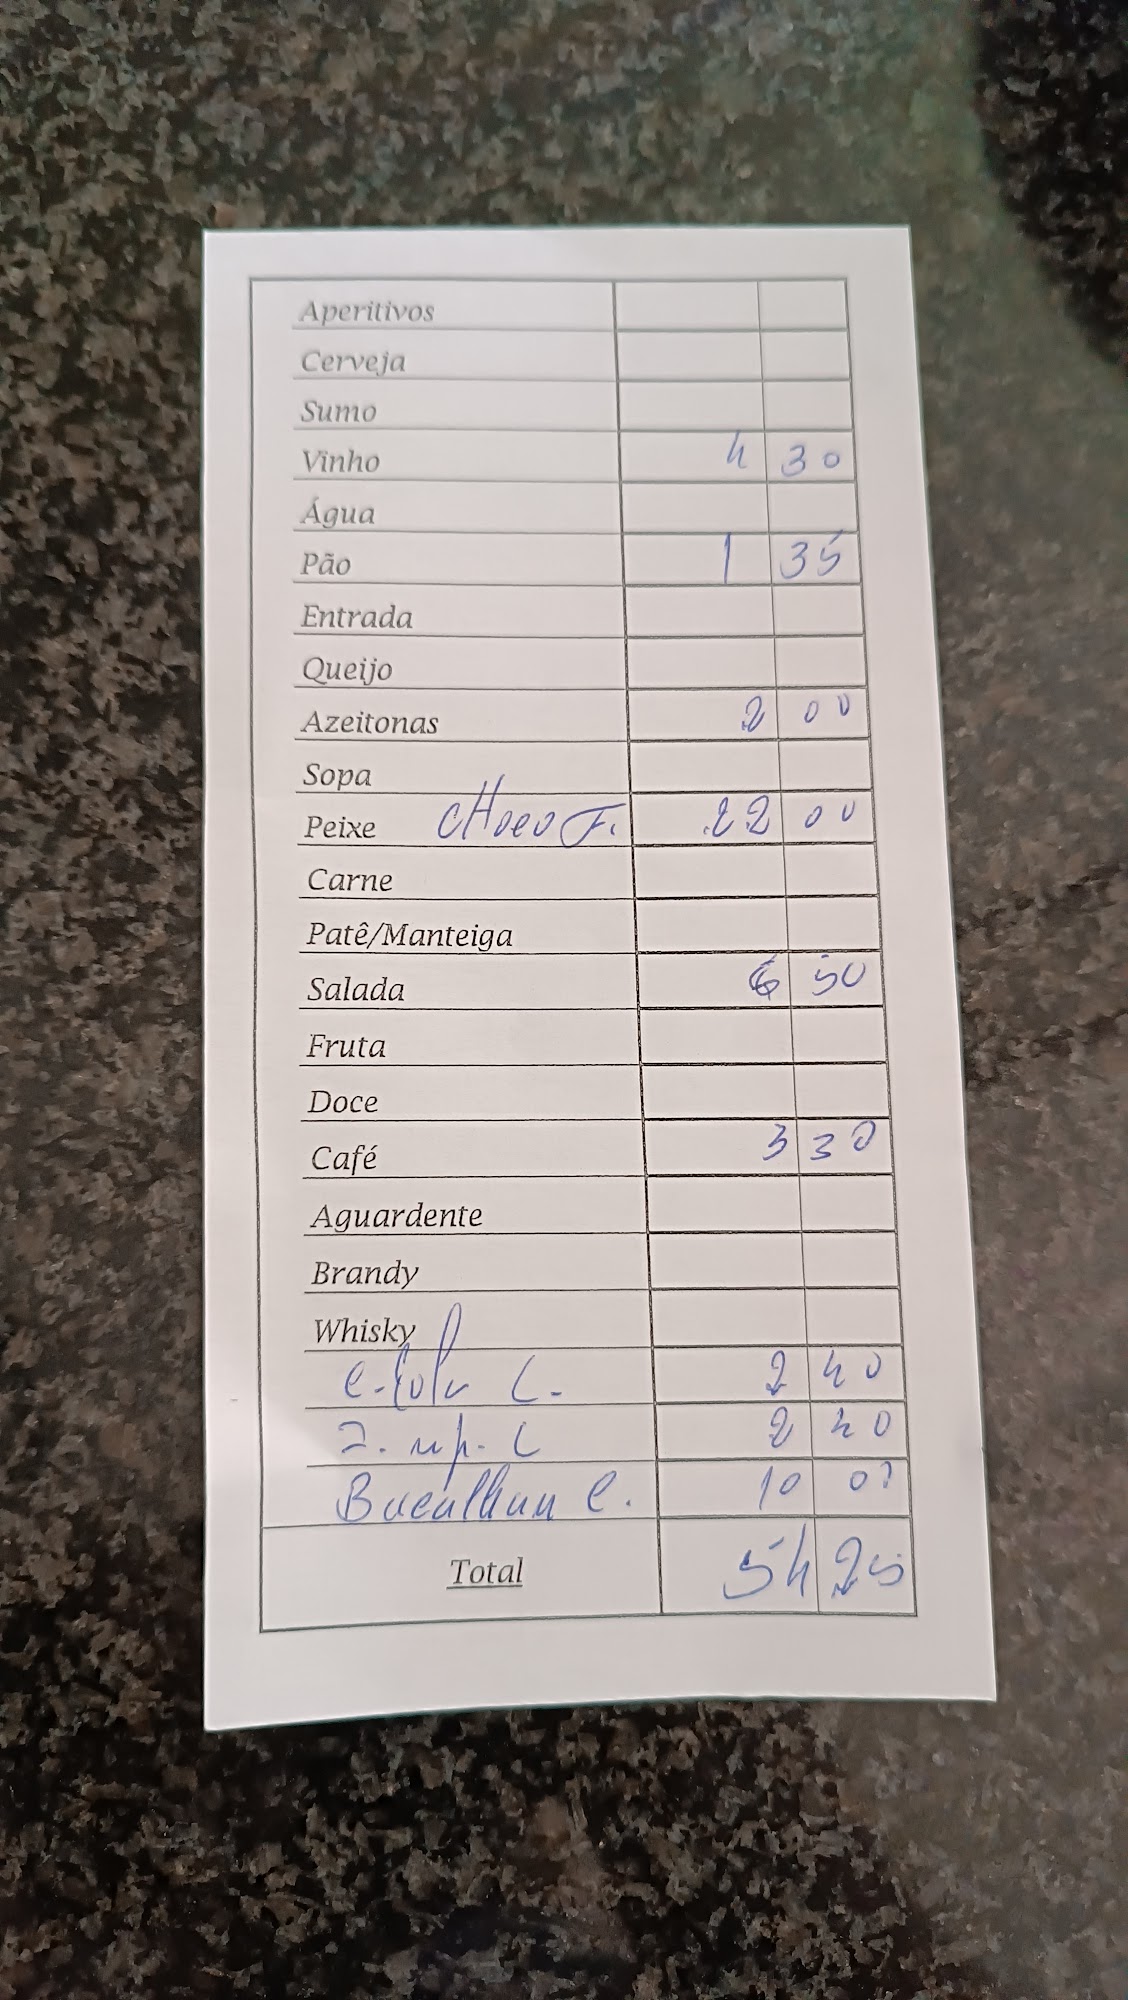 Aperitivos
Cerveja
Sumo
Vinho 4 30
Água
Pão 1 35
Entrada
Queijo
Azeitonas 2 00
Sopa
Peixe CHoco F. 22 00
Carne
Patê/Manteiga
Salada 6 50
Fruta
Doce
Café 3 30
Aguardente
Brandy
Whisky
C. 2 40
2 40
Bacalhau C. 10 00
Total 54 25